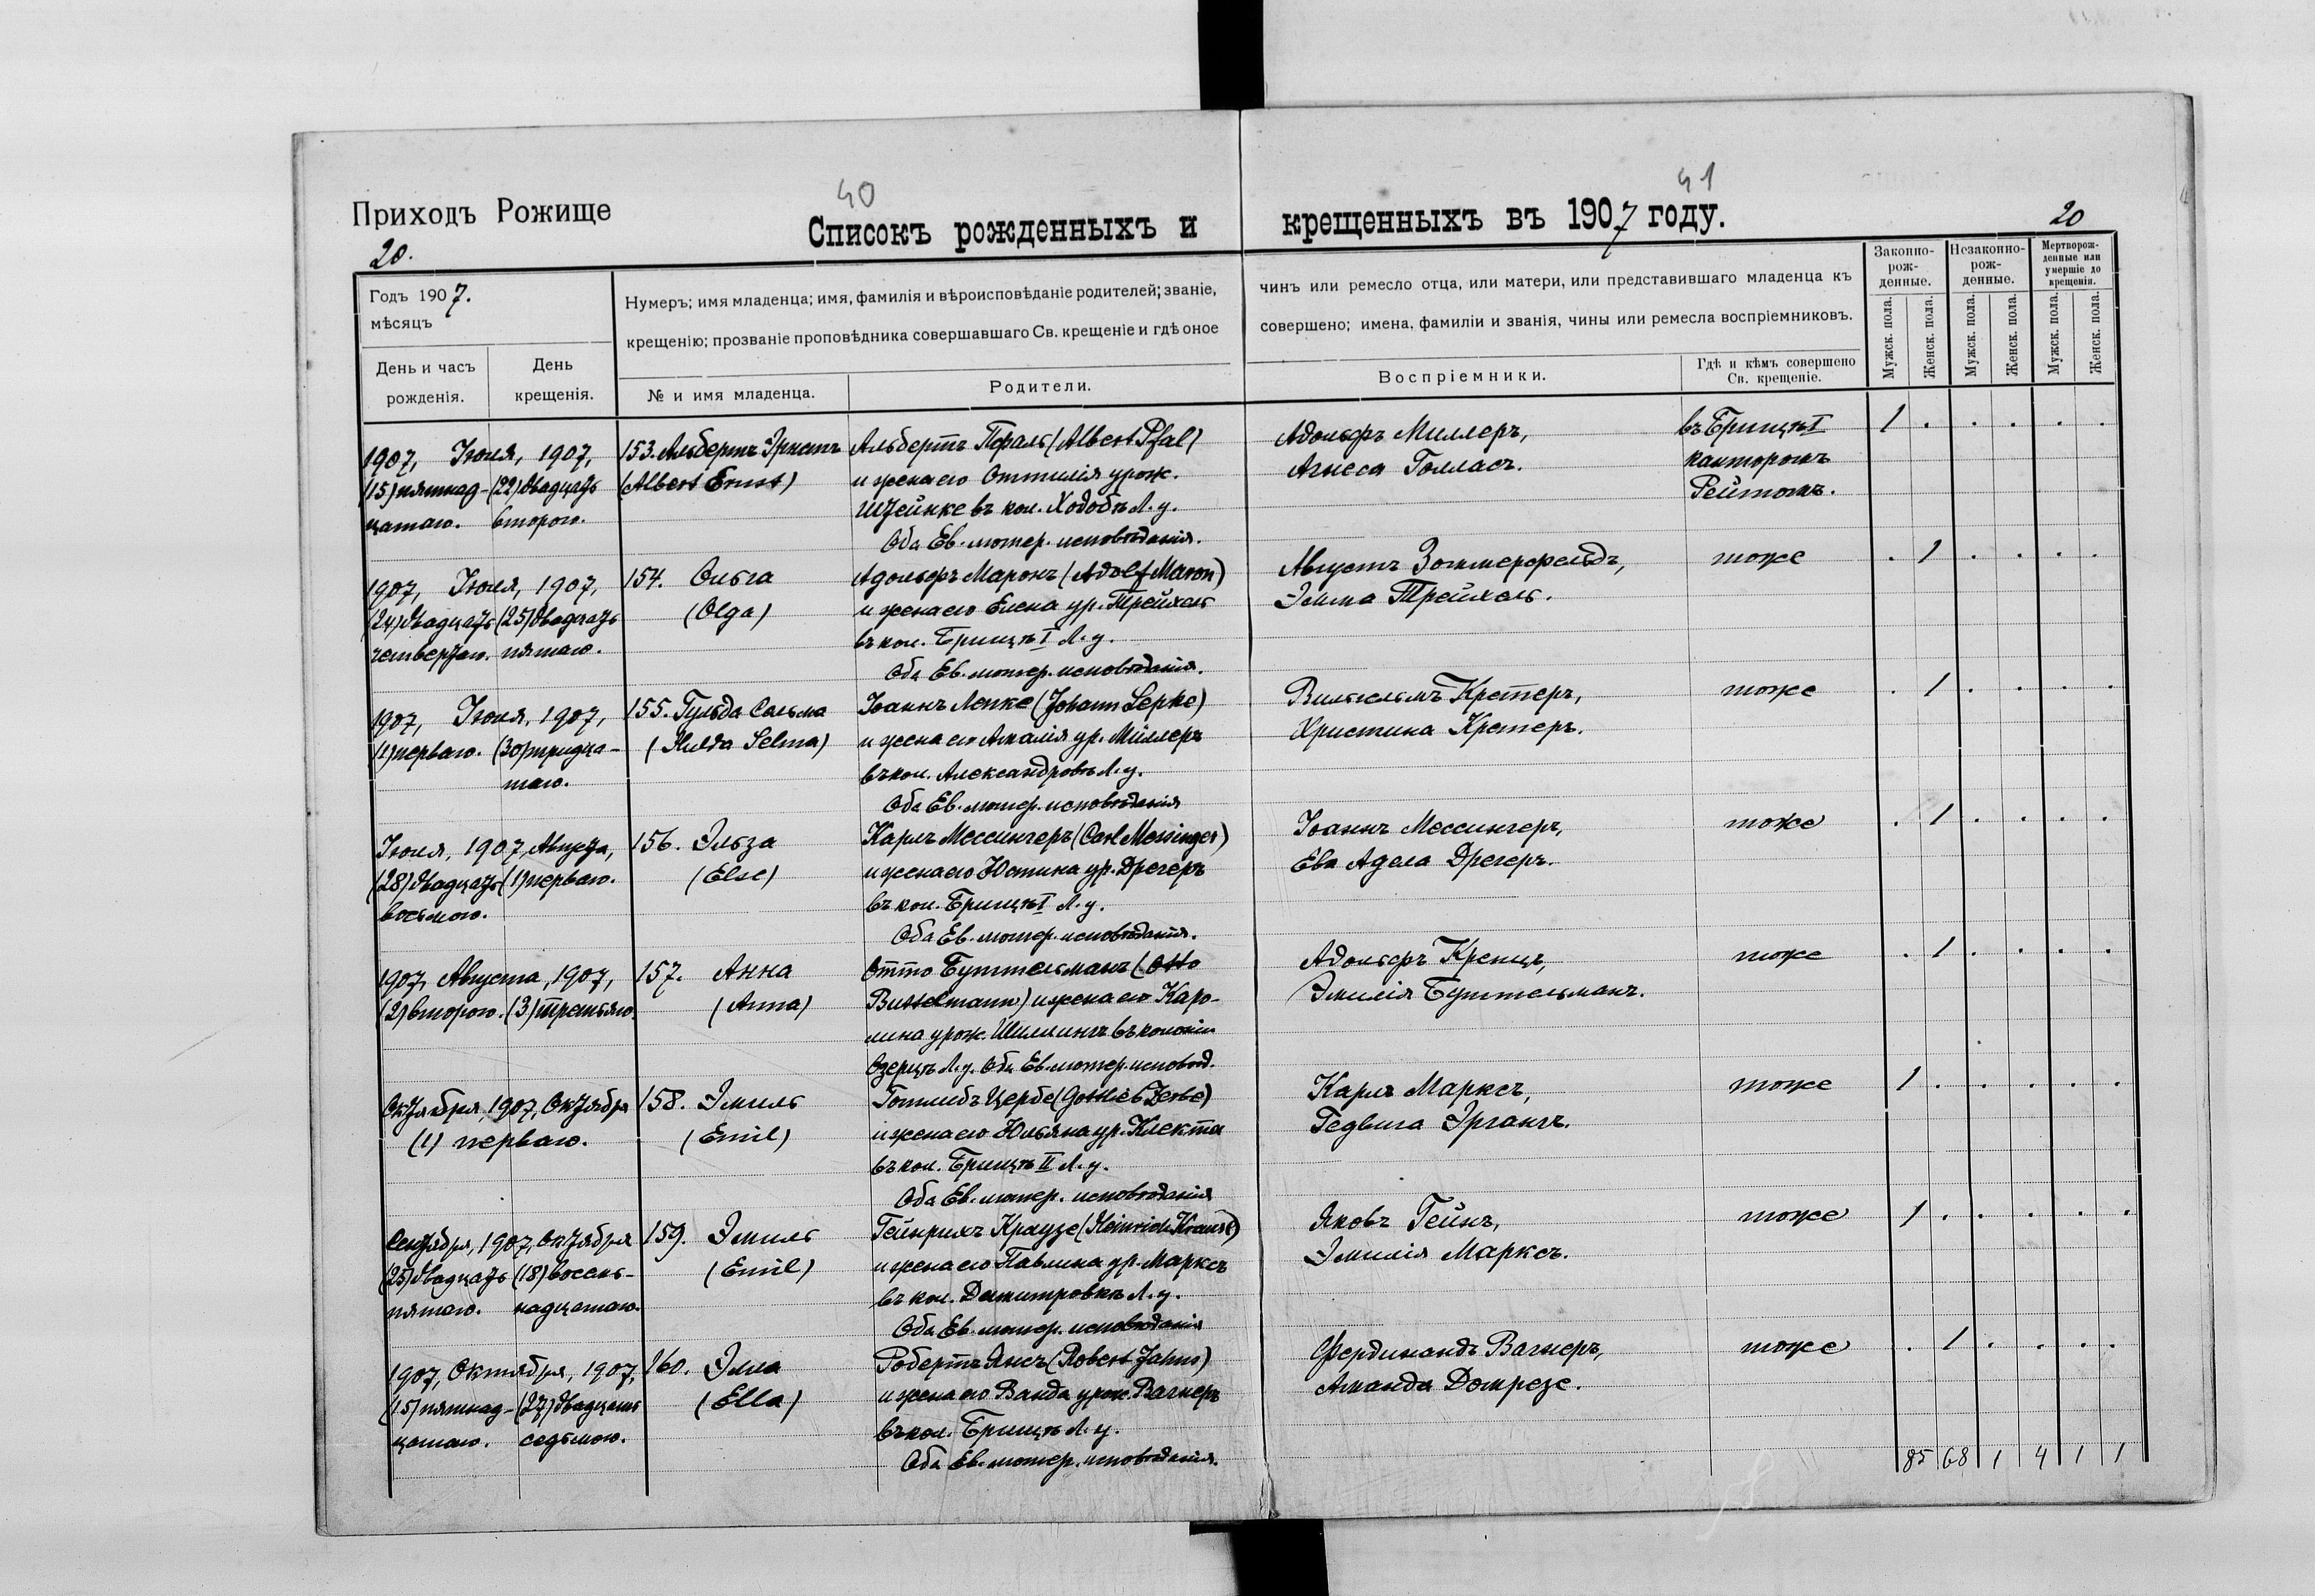 40
41
Приходъ Рожище
Списокъ рожденныхъ и крещенныхъ въ 1907 году.
20.
20
Годъ 1907.
мѣсяцъ
День и часъ рожденія.
День крещенія.
Нумеръ; имя младенца; имя, фамилія и вѣроисповѣданіе родителей; званіе,
крещенію; прозваніе проповѣдника совершавшаго Св. крещеніе и гдѣ оное
№ и имя младенца.
Родители.
чинъ или ремесло отца, или матери, или представившаго младенца къ
совершено; имена, фамиліи и званія, чины или ремесла воспріемниковъ.
Воспріемники.
Гдѣ и кѣмъ совершено
Св. крещеніе.
Законно-
рож-
денные.
Незаконно-
рож-
денные.
Мертворож-
денные или
умершіе до
крещенія.
Мужск. пола.
Женск. пола.
Мужск. пола.
Женск. пола.
Мужск. пола.
Женск. пола.
1907, Іюля, 1907, 153. Альбертъ Эрнстъ Альбертъ Пфаль (Albert Pfal) Адольфъ Миллеръ, въ Брищѣ I 1 . . . . .
(15) пятнад- (22) двадцать (Albert Ernst) и жена его Оттилія урож. Агнеса Голласъ. канторомъ
цатаго. второго. Штейнке въ кол. Ходобѣ Л. у. Рейтомъ.
Оба Ев. лютер. исповѣданія.
1907, Іюля, 1907, 154. Ольга Адольфъ Маронъ (Adolf Maron) Августъ Зоммерфельдъ, тоже . 1 . . . .
(24) двадцать (25) двадцать (Olga) и жена его Елена ур. Трейхель Эмма Трейхель.
четвертаго. пятаго. въ кол. Брищѣ I Л. у.
Оба Ев. лютер. исповѣданія.
1907, Іюля, 1907, 155. Гульда Сельма Іоаннъ Лепке (Johann Lepke) Вильгельмъ Кретеръ, тоже . 1 . . . .
(1) перваго. (30) тридца- (Hulda Selma) и жена его Амалія ур. Миллеръ Христина Кретеръ.
таго. въ кол. Александровѣ Л. у.
Оба Ев. лютер. исповѣданія
Іюля, 1907, Августа, 156. Эльза Карлъ Мессингеръ (Carl Messinger) Іоаннъ Мессингеръ, тоже . 1 . . . .
(28) двадцать (1) перваго. (Else) и жена его Юстина ур. Дрегеръ Ева Адела Дрегеръ.
восьмого. въ кол. Брищѣ I Л. у.
Оба Ев. лютер. исповѣданія.
1907, Августа, 1907, 157. Анна Отто Буттельманъ (Otto Адольфъ Кренцъ, тоже . 1 . . . .
(2) второго. (3) третьяго. (Anna) Buttelmann) и жена его Каро- Эмилія Буттельманъ.
лина урож. Шиллингъ въ колоніи
Озерцѣ Л. у. Оба Ев. лютер. исповѣд.
Октября, 1907, Октября 158. Эмиль Готлибъ Цербе (Gottlieb Zerbe) Карлъ Марксъ, тоже 1 . . . . .
(1) перваго. (Emil) и жена его Юльяна ур. Клекта Гедвига Эргангъ.
въ кол. Брищѣ II Л. у.
Оба Ев. лютер. исповѣданія
Сентября, 1907, Октября 159. Эмиль Гейнрихъ Краузе (Heinrich Krause) Яковъ Гейнъ, тоже 1 . . . . .
(25) двадцать (18) восемь- (Emil) и жена его Павлина ур. Марксъ Эмилія Марксъ.
пятаго. надцатаго. въ кол. Дмитровкѣ Л. у.
Оба Ев. лютер. исповѣданія
1907, Октября, 1907, 160. Элла Робертъ Янсъ (Robert Jahns) Фердинандъ Вагнеръ, тоже . 1 . . . .
(15) пятнад- (27) двадцать (Ella) и жена его Ванда урож. Вагнеръ Аманда Домрезе.
цатаго. седьмого. въ кол. Брищѣ Л. у.
Оба Ев. лютер. исповѣданія.
85 68 1 4 1 1